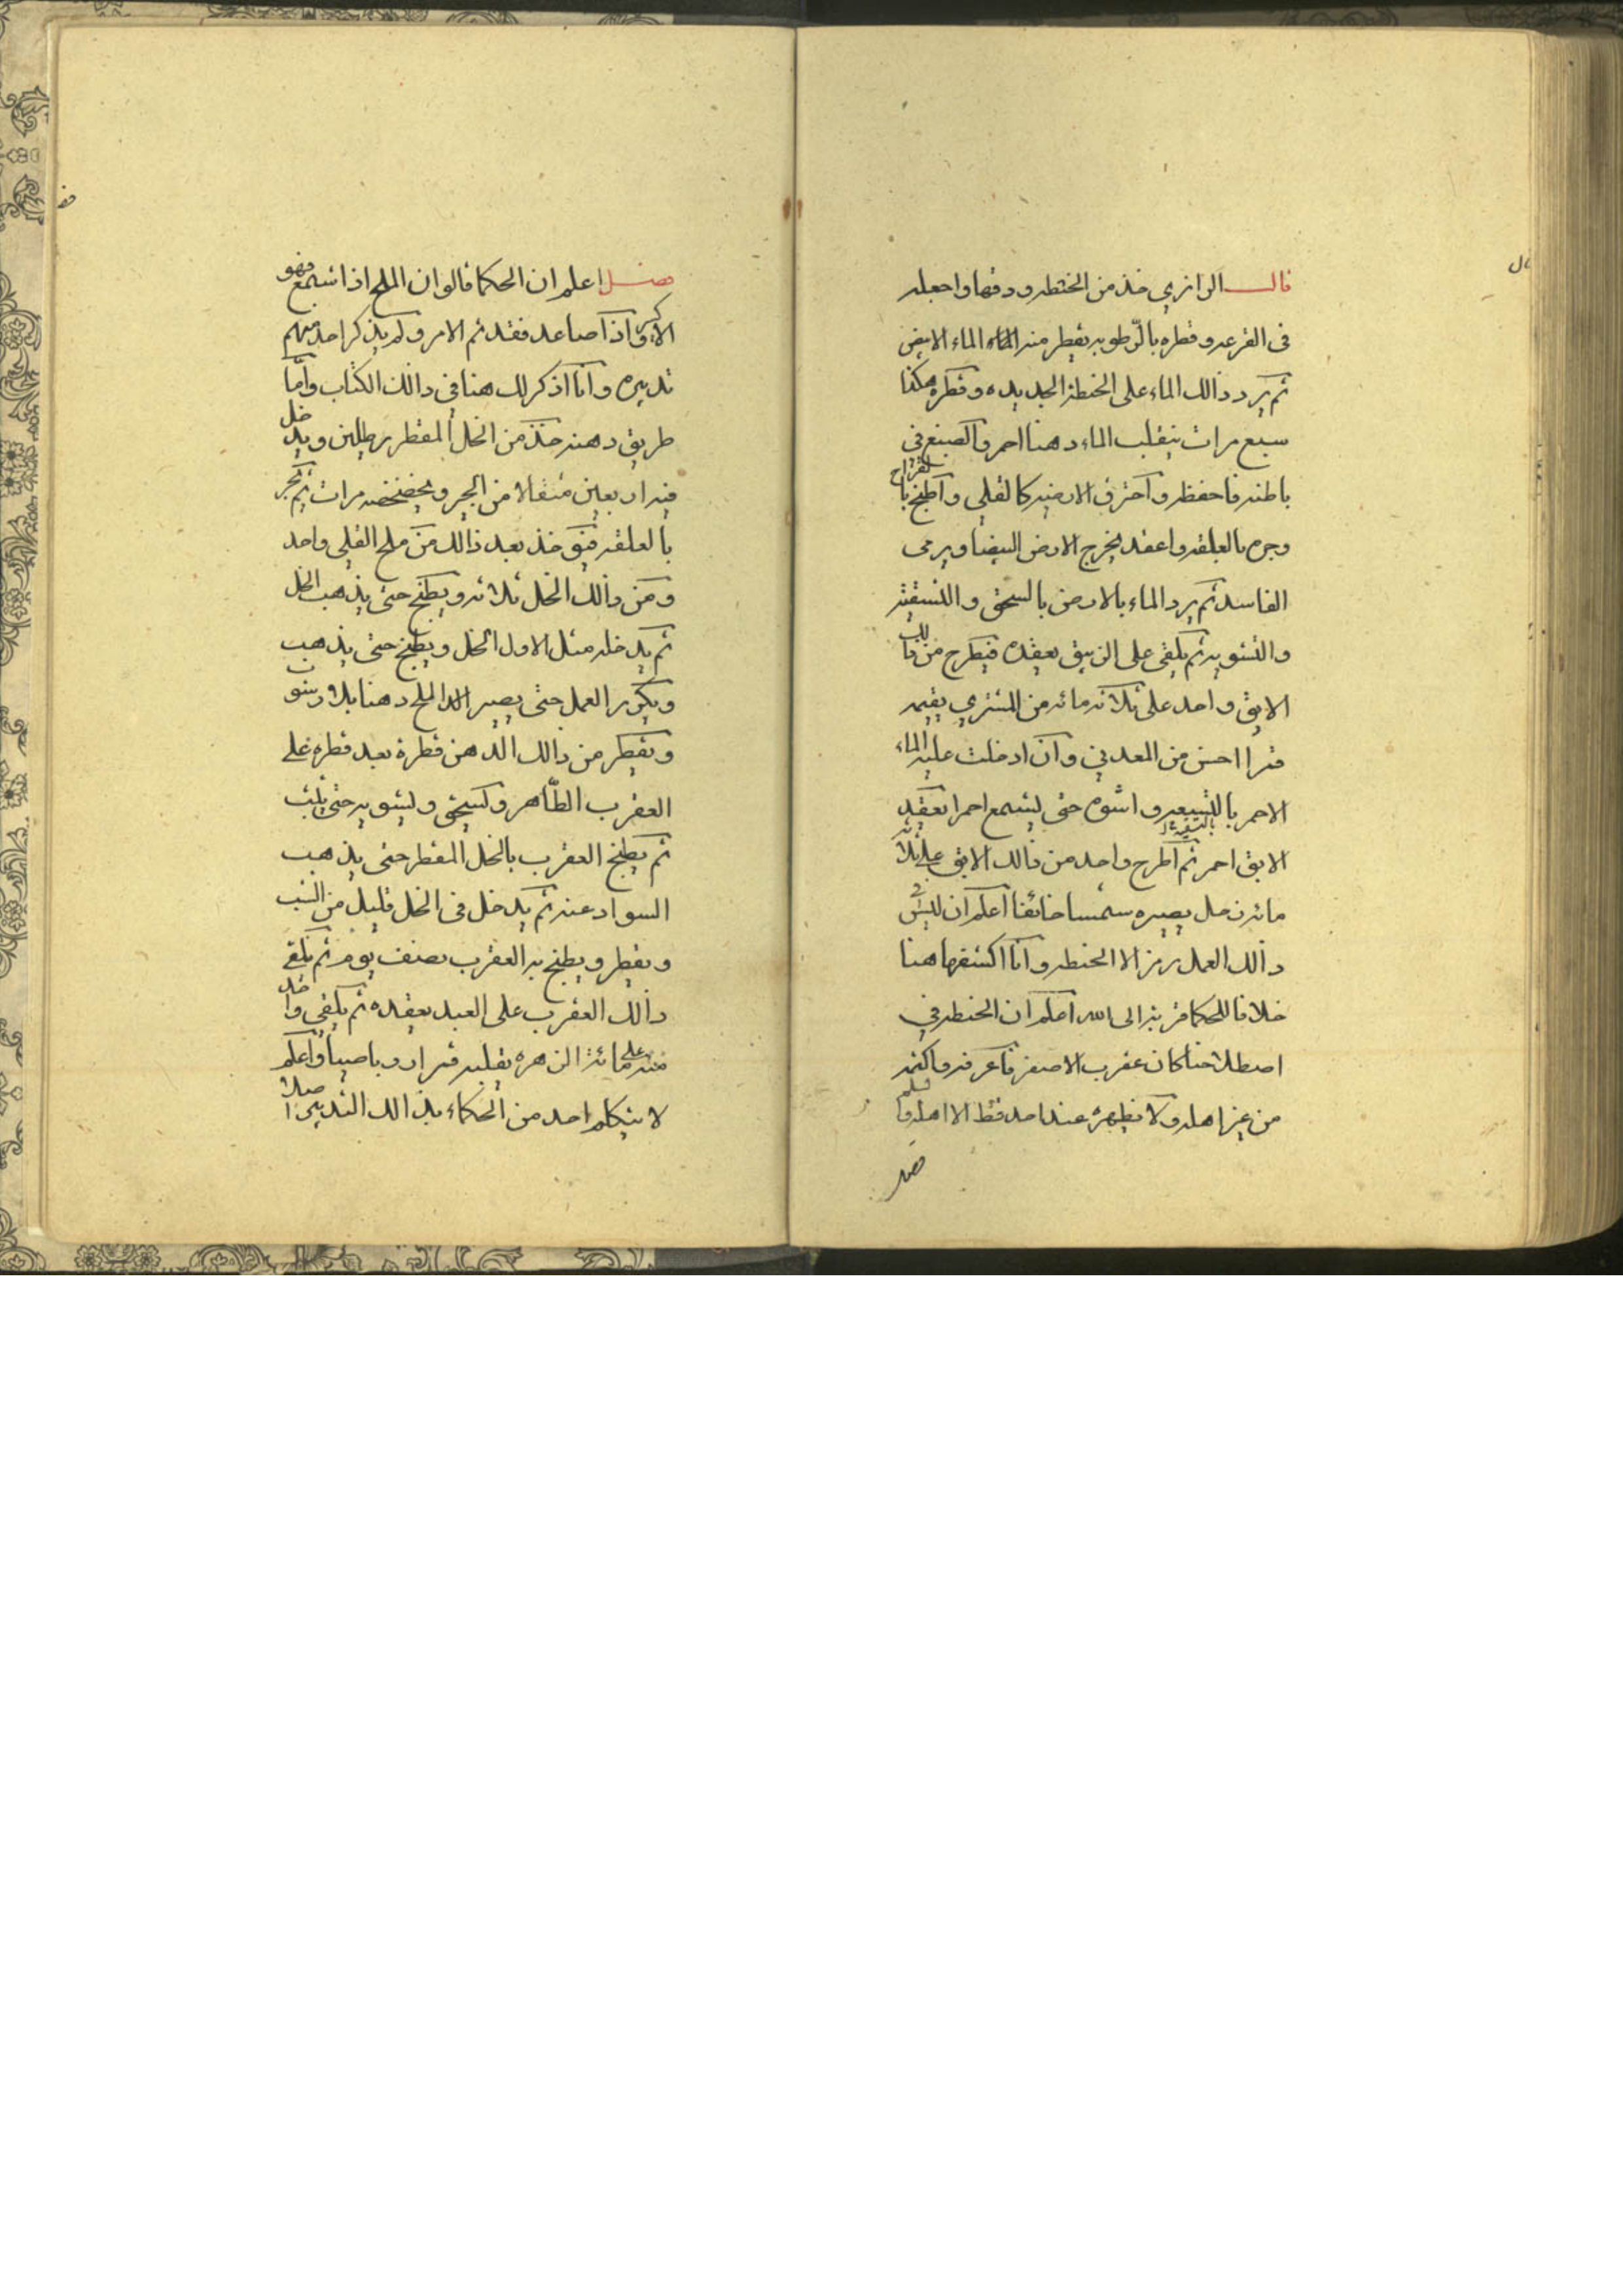 قال الرازي خذ من الخنطه ودقها واجعله
فى القرعه وقطره بالرّطوبه يقطر منه الماء الابيض
ثم يرد ذالك الماء على الخنطة الجديده وقطره هكذا
سبع مرات ينقلب الماء دهنا احمر والصبغ فى
باطنه فاحفظه واحترق الارضيه كالقلى واطبخ بالقراح
وجره بالعلقه واعقد يخرج الارض البيضا ويرمى
الفاسد ثم يرد الماء بالارض بالسحق والتسقيه
والتشويه ثم يلقى على الزيبق يعقده فيطرح من ذالك
الابق واحد على ثلاثه مائه من المشترى يقيمه
قمرا احسن من المعدنى وان ادخلت عليه الماء
الاحمر بالتسقيه واشوه حتى يشمع احمرا يعقد
الابق احمر ثم اطرح واحد من ذالك الابق على ثلاثه
مائه زحل يصيره شمسا خائفا اعلم ان ليس فى
ذالك العمل رمز الا الخنطه وانا اكشفها هنا
خلافا للحكما قربة الى الله اعلم ان الخنطه فى
اصطلاحنا كان عقرب الاصفر فاعرفه واكتمه
من غير اهله ولا تظهره عند احد قط الا اهله
فصل
فصل اعلم ان الحكما قالوان الملح اذا اشمع فهو
الاكبر واذا صاعد فقد تم الامر ولم يذكر احد منهم
تدبيره وانا اذكر لك هنا فى ذالك الكتاب وامّا
طريق دهنه خذ من الخل المقطر رطلين ويدخل
فيه اربعين مثقالا من الجير ويخضخضه مرات ثم يجر
بالعلقه فيق خذ بعد ذالك من ملح القلى واحد
ومن ذالك الخل ثلاثه ويطبخ حتى يذهب الخل
ثم يدخله مثل الاول الخل ويطبخ حتى يذهب
ويكرر العمل حتى يصير الملح دهنا بلا رسوب
ويقطر من ذالك الدهن قطرة بعد قطره على
العقرب الطّاهر وكسحق ويشويه حتى يثبت
ثم يطبخ العقرب بالخل المقطر حتى يذهب
السواد عنه ثم يدخل فى الخل قليل من الشب
ويقطر ويطبخ به العقرب نصف يوم ثم يلقى
ذالك العقرب على العبد يعقده ثم يلقى واحد
منه على مائة الزهره يقلبه قمرا روباصيا واعلم
لا يتكلم احد من الحكماء بذالك التدبير اصلا